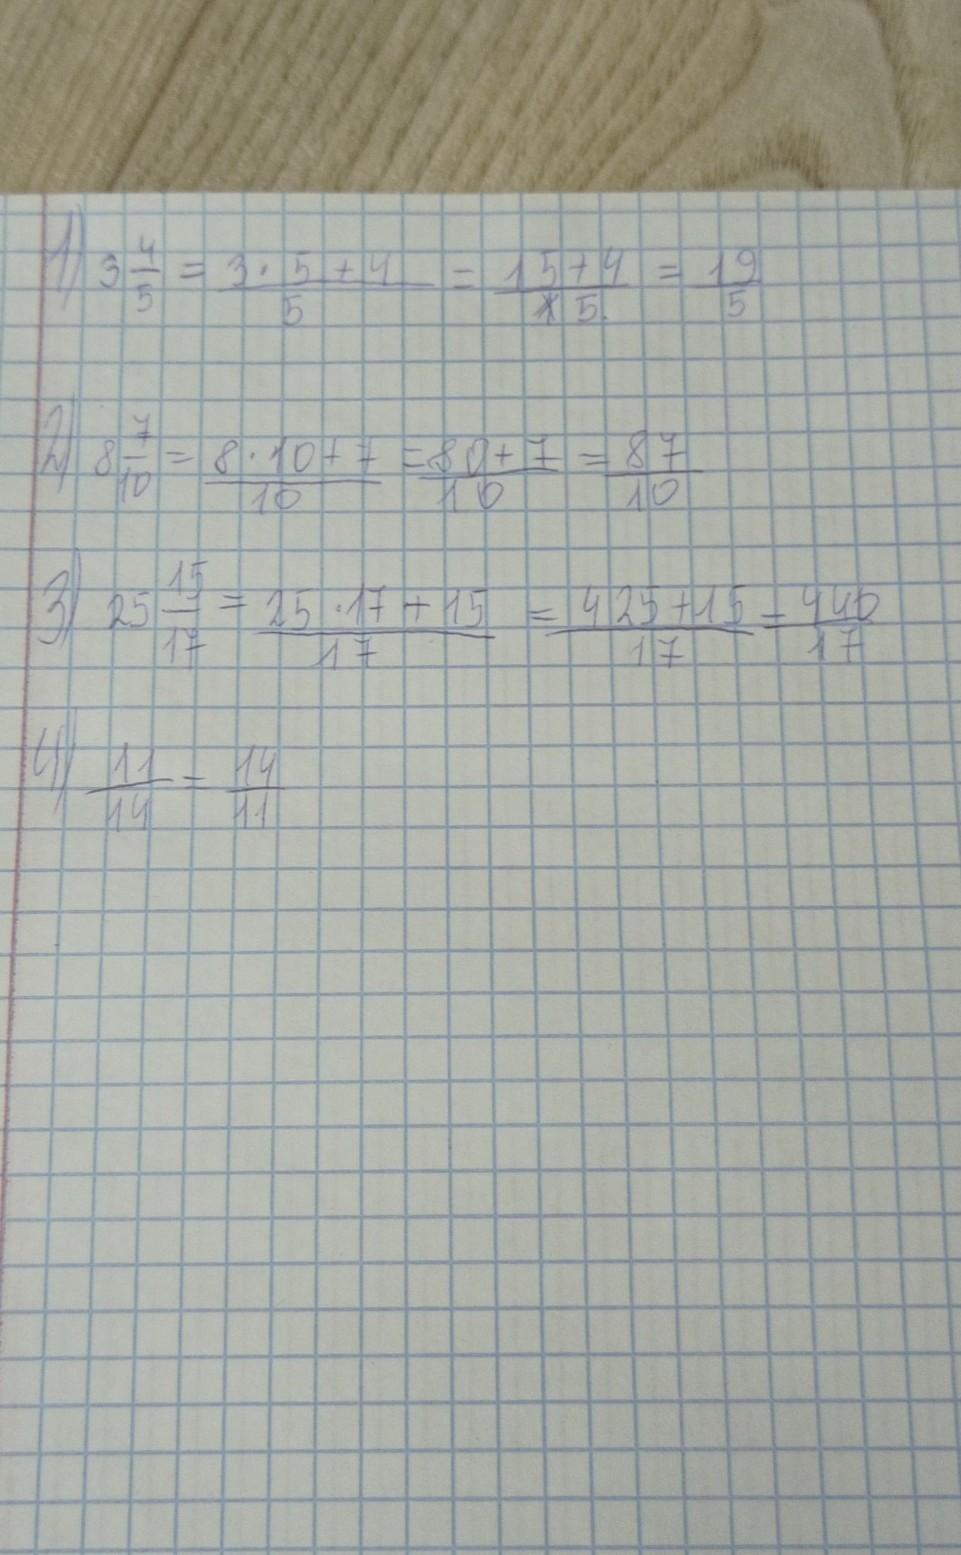 1) 3 4/5 = 3·5+4/5 = 15+4/5 = 19/5
2) 8 7/10 = 8·10+7/10 = 80+7/10 = 87/10
3) 25 15/17 = 25·17+15/17 = 425+15/17 = 440/17
4) 11/14 = 14/11